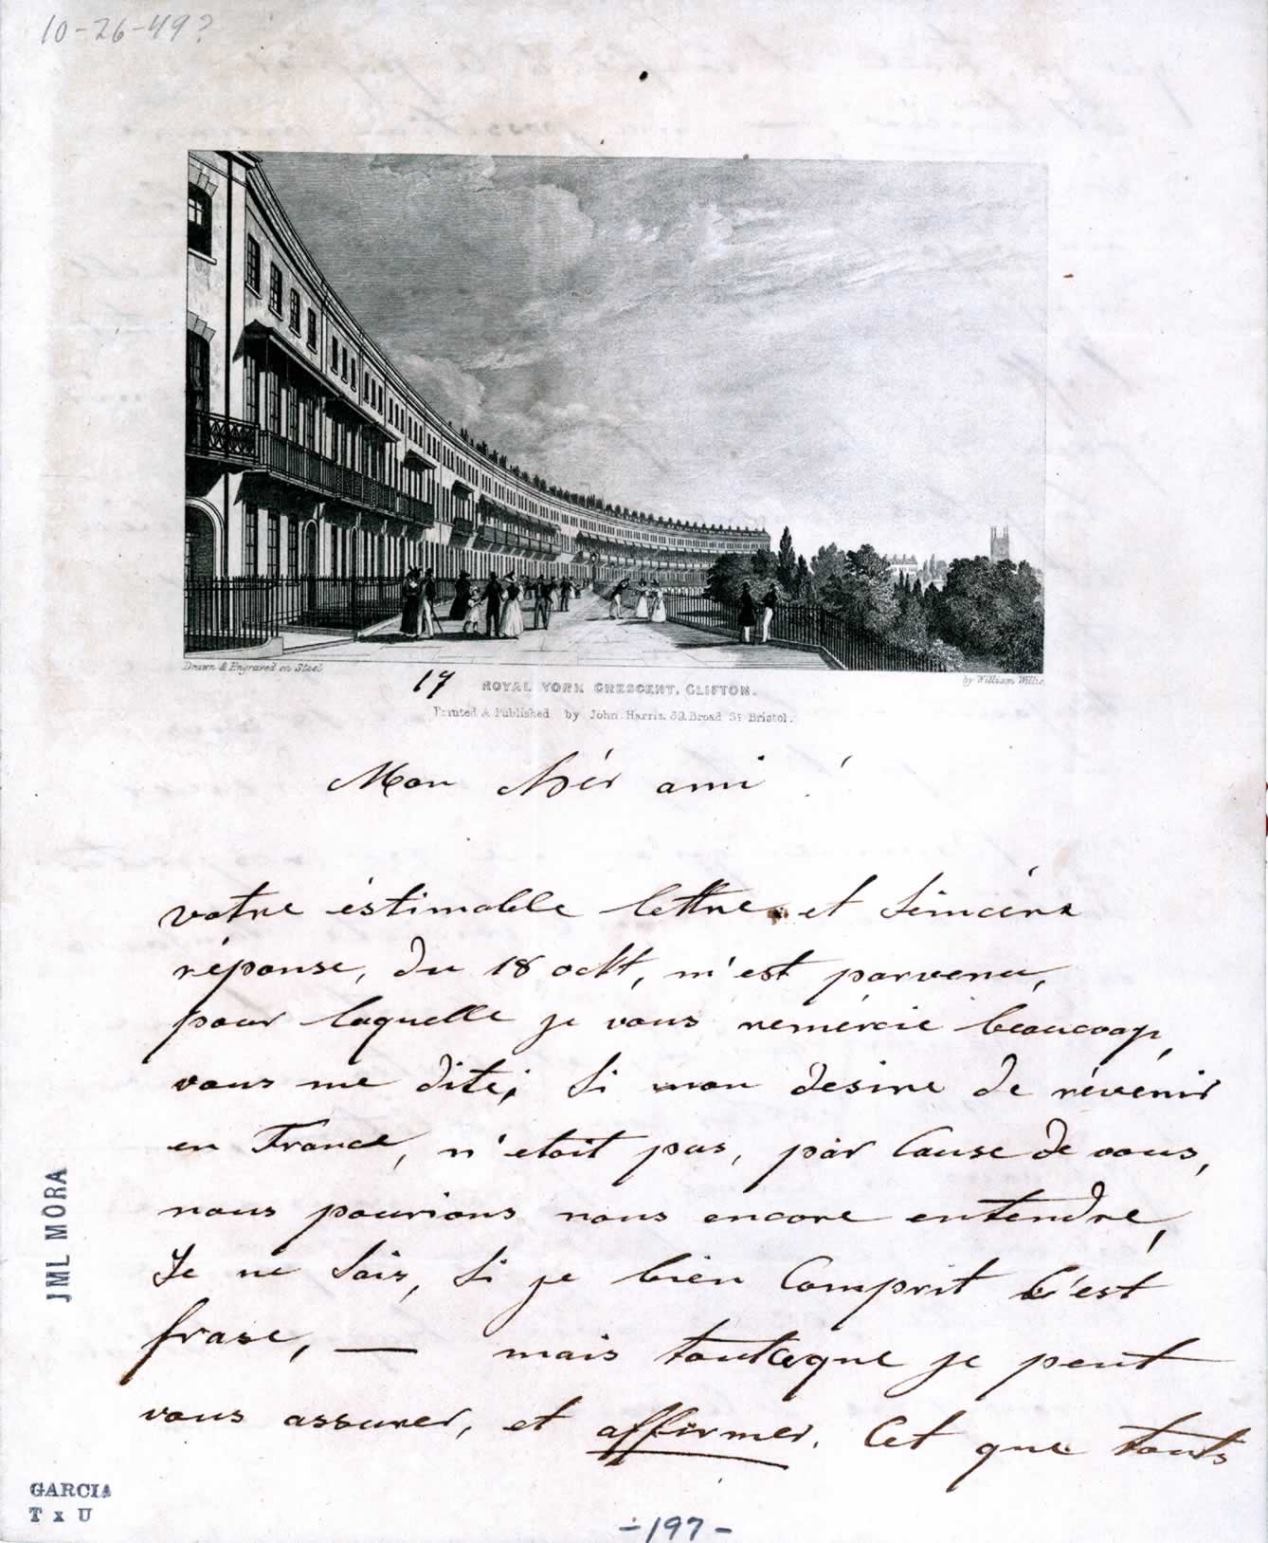 10-26-49?
Drawn & Engraved on Steel
by William Willis
17
ROYAL YORK CRESCENT, CLIFTON.
Printed & Published by John Harris, 39, Broad St. Bristol.
Mon chér ami !
votre éstimable lettre et sincére
réponse, du 18 octt, m'est parvenu,
pour laquelle je vous remércie beaucoop,
vous me dite; si mon desire de révénir
en France, n'etoit pas, pár cause de vous,
nous pourions nous encore entendre,
Je ne sais, si je bien comprit c'est
frase, — mais toutceque je peut
vous assurer, et affirmer. Cet que touts
JML MORA
GARCIA
T x U
-197-